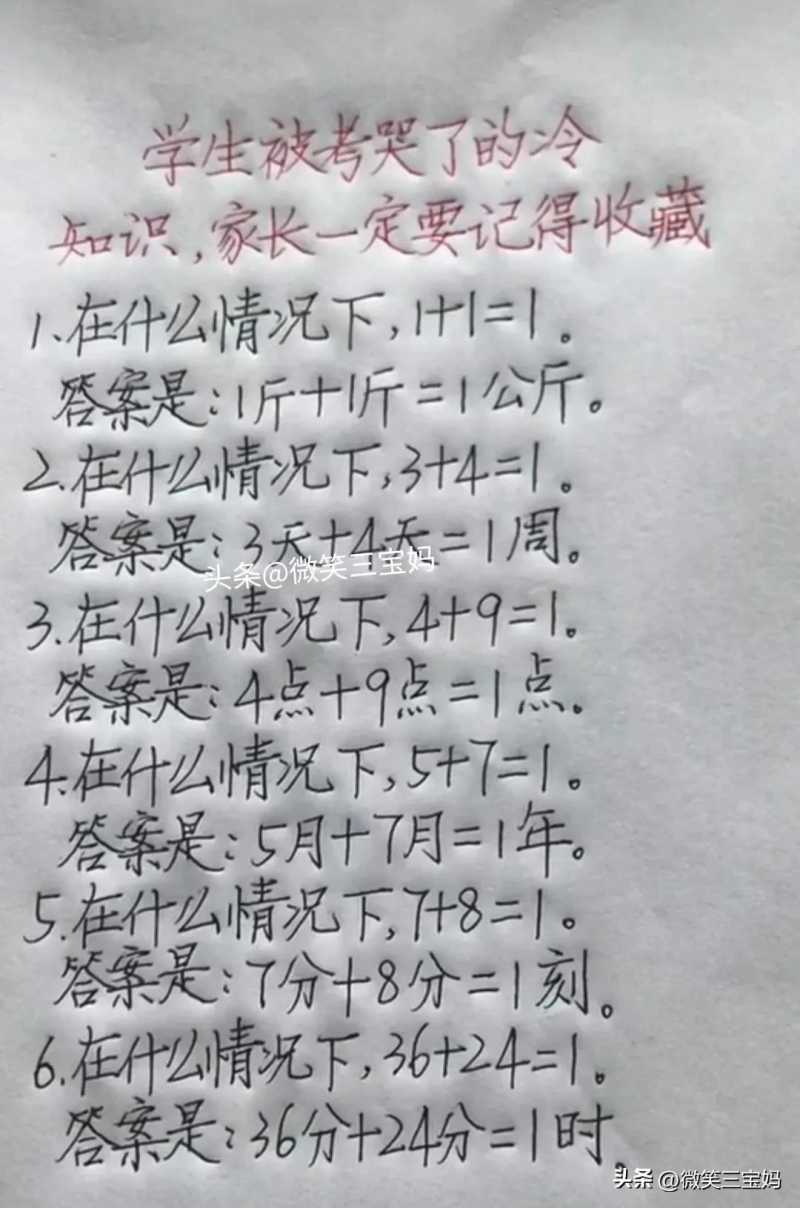 学生被考哭了的冷
知识,家长一定要记得收藏
1.在什么情况下,1+1=1。
答案是:1斤+1斤=1公斤。
2.在什么情况下,3+4=1。
答案是:3天+4天=1周。
头条@微笑三宝妈
3.在什么情况下,4+9=1。
答案是:4点+9点=1点。
4.在什么情况下,5+7=1。
答案是:5月+7月=1年。
5.在什么情况下,7+8=1。
答案是:7分+8分=1刻。
6.在什么情况下,36+24=1。
答案是:36分+24分=1时。
头条 @微笑三宝妈